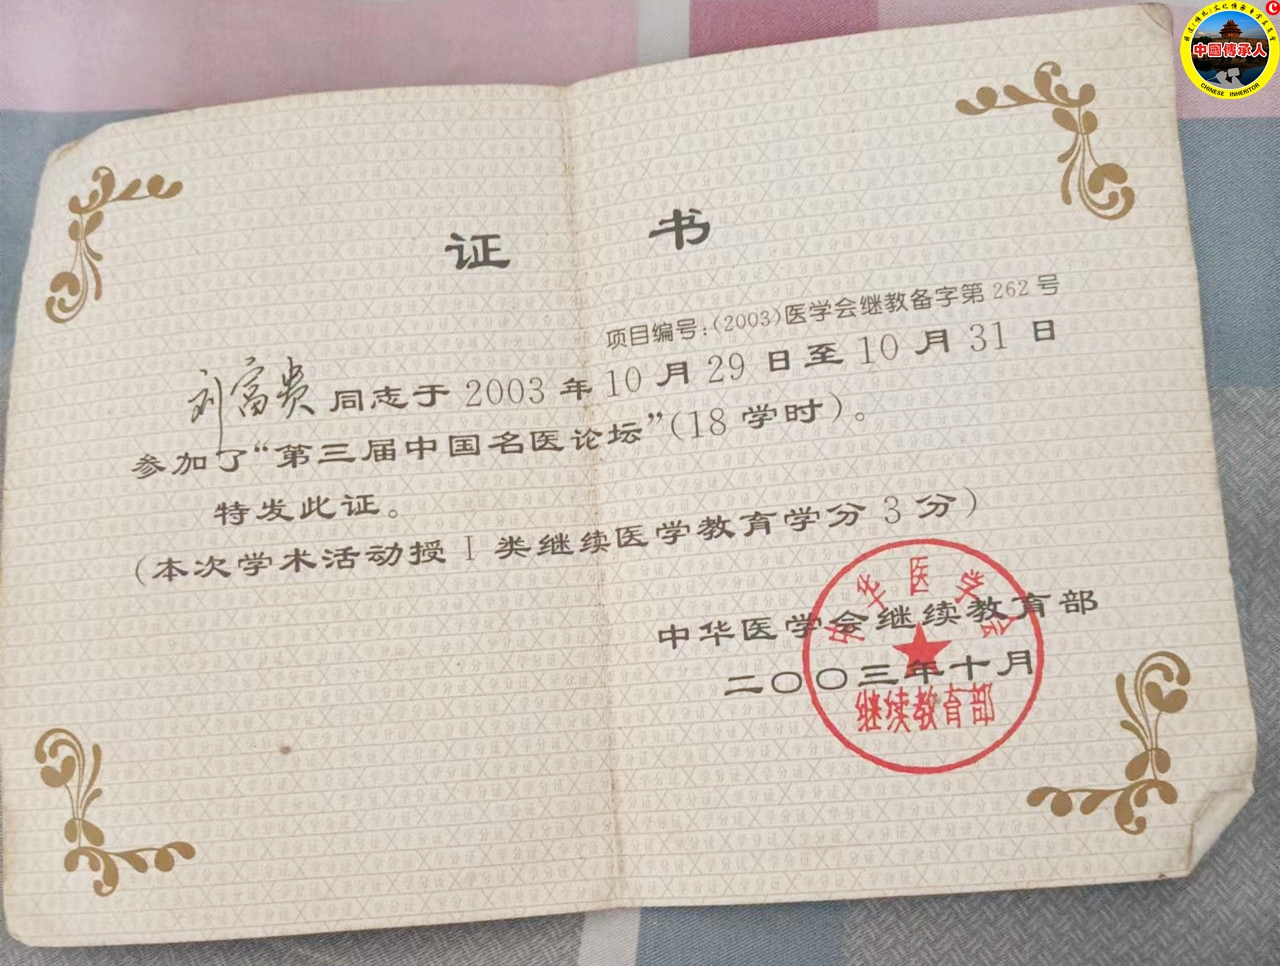 证 书
项目编号:(2003)医学会继教备字第 262 号
刘富贵 同志于 2003 年 10 月 29 日至 10 月 31 日
参加了“第三届中国名医论坛”(18 学时)。
特发此证。
(本次学术活动授 I 类继续医学教育学分 3 分)
中华医学会继续教育部
二〇〇三年十月
中华医学会
继续教育部
中國傳承人
CHINESE INHERITOR
C